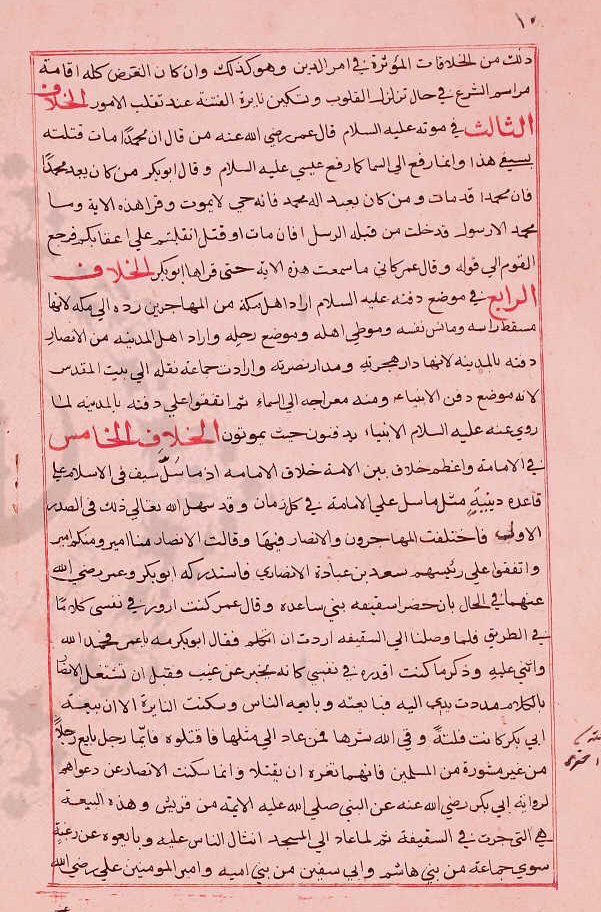 ١٠
ذلك من الخلافات المؤثرة في امر الدين وهو كذلك وان كان الغرض كله اقامة
مراسم الشرع في حال تزلزل القلوب وتسكين نايرة الفتنة عند تقلب الامور الخلاف
الثالث في موته عليه السلام قال عمر رضي الله عنه من قال ان محمدا مات قتلته
بسيفي هذا وانما رفع الى السما كما رفع عيسي عليه السلام وقال ابوبكر من كان يعبد محمدًا
فان محمدا قد مات ومن كان يعبد اله محمد فانه حي لا يموت وقرا هذه الاية وما
محمد الا رسول قد خلت من قبله الرسل افان مات او قتل انقلبتم علي اعقابكم فرجع
القوم الي قوله وقال عمر كاني ما سمعت هذه الاية حتى قراها ابوبكر الخلاف
الرابع في موضع دفنه عليه السلام اراد اهل مكة من المهاجرين رده الي مكه لانها
مسقط راسه ومانس نفسه وموطي اهله وموضع رحله واراد اهل المدينه من الانصار
دفنه بالمدينه لانها دار هجرته ومدار نصرته وارادت جماعة نقله الي بيت المقدس
لانه موضع دفن الانبياء ومنه معراجه الي السماء ثم اتفقوا علي دفنه بالمدينه لما
روي عنه عليه السلام الانبياء يدفنون حيث يموتون الخلاف الخامس
في الامامة واعظم خلاف بين الامة خلاف الامامه اذ ما سُلَّ سيف في الاسلام علي
قاعده دينيةٍ مثل ما سل علي الامامة في كل زمان وقد سهل الله تعالي ذلك في الصدر
الاول فاختلفت المهاجرون والانصار فيها وقالت الانصار منا امير ومنكم امير
واتفقوا على رئيسهم سعد بن عبادة الانصاري فاستدركه ابوبكر وعمر رضي الله
عنهما في الحال بان حضرا سقيفه بني ساعده وقال عمر كنت ازور في نفسي كلامًا
في الطريق فلما وصلنا الي السقيفه اردت ان اتكلم فقال ابوبكر مه يا عمر فحمد الله
واثني عليه وذكر ما كنت اقدره في نفسي كانه يخبر عن غيب وقبل ان تشتغل الانصار
بالكلام مددت يدي اليه فبايعته وبايعه الناس وسكنت النايرة الا ان بيعة
ابي بكر كانت فلتةً وقي الله شرها فمن عاد الي مثلها فاقتلوه فايما رجل بايع رجلاً
من غير مشورة من المسلمين فانهما تغره ان يقتلا وانما سكنت الانصار عن دعواهم
لرواية ابي بكر رضي الله عنه عن النبي صلي الله عليه الايمة من قريش وهذه البيعة
هي التي جرت في السقيفة ثم لما عاد الي المسجد انثال الناس عليه وبايعوه عن رغبةٍ
سوي جماعة من بني هاشم وابي سفين من بني اميه وامير المومنين علي رضي الله